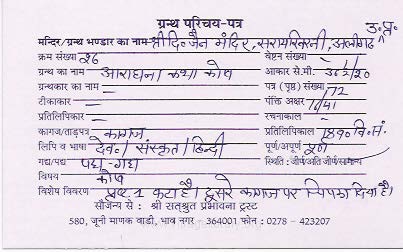 ग्रन्थ परिचय-पत्र
उ.प्र.
मन्दिर/ग्रन्थ भण्डार का नाम श्री दि० जैन मंदिर, सराय, अलीगढ़
क्रम संख्या 26 वेष्टन संख्या -
ग्रन्थ का नाम आराधना कथा कोष आकार से.मी. 36½/20
ग्रन्थकार का नाम - पत्र (पृष्ठ) संख्या 72
टीकाकार - पंक्ति अक्षर 10/41
प्रतिलिपिकार - रचनाकाल -
कागज/ताड़पत्र कागज प्रतिलिपिकाल वि.सं.
लिपि व भाषा देव०/संस्कृत/हिन्दी पूर्ण/अपूर्ण पूर्ण
गद्य/पद्य पद्य-गद्य स्थिति : जीर्ण/अति जीर्ण/सामान्य
विषय कोष
विशेष विवरण पृष्ठ. 1 कटा है। दूसरे कागज पर चिपका दिया है।
सौजन्य से : श्री सत्श्रुत प्रभावना ट्रस्ट
580, जूनी माणक वाडी, भाव नगर - 364001 फोन : 0278 - 423207